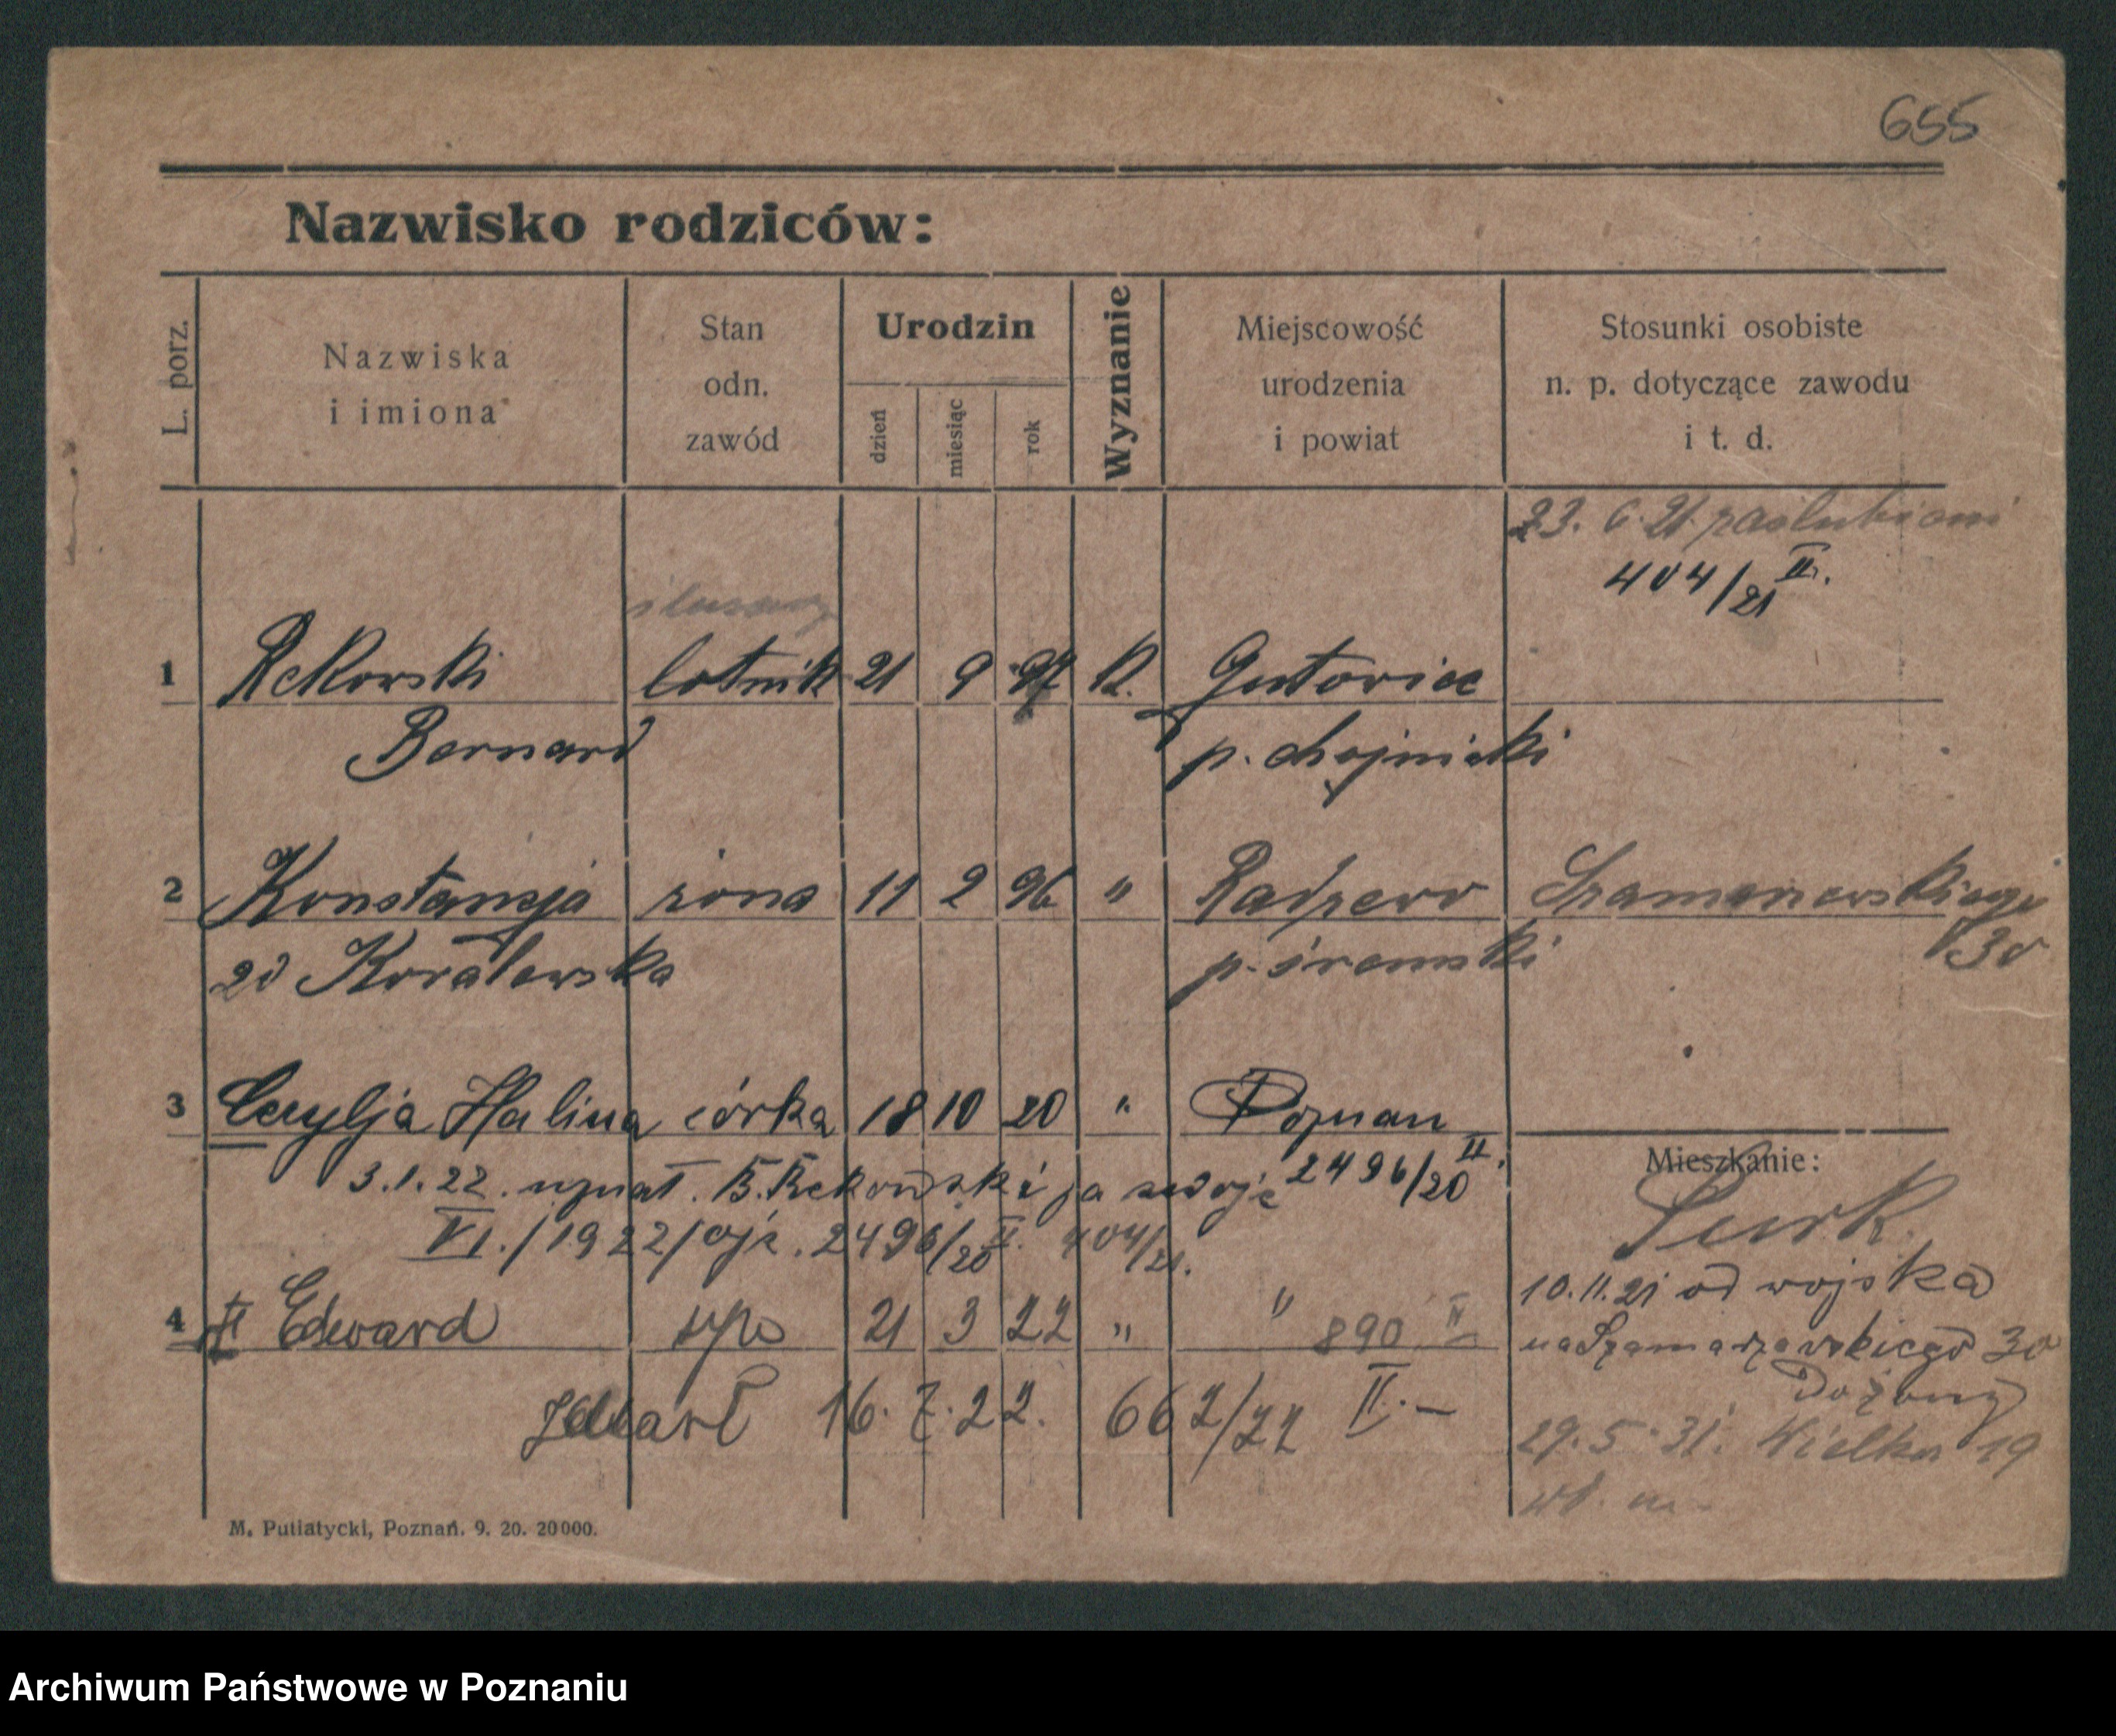 655
Nazwisko rodziców:
L. porz.
Nazwiska
i imiona
Stan
odn.
zawód
Urodzin
dzień
miesiąc
rok
Wyznanie
Miejscowość
urodzenia
i powiat
Stosunki osobiste
n. p. dotyczące zawodu
i t. d.
23. 6. 21 zaslubieni
404/21 II.
ślusarz
1 Rekowski lotnik 21 9 97 k. Gutowiec
Bernard p. chojnicki
2 Konstancja żona 11 2 96 " Radzewo Szamarzewskiego
zd Kowalewska p. śremski 30
3 Cecylja Halina córka 18 10 20 " Poznan
2496/20 II.
3.1.22. uznał. B. Rekowski ja swoje
VI./1922/ojc. 2496/20 II. 404/21.
Mieszkanie:
10.11.21 od wojska
na Szamarzewskiego 30
Do żony
29.5.31. Wielka 19
4 † Edward syn 21 3 22 " " 890 II
Zmarł 16. 7. 22. 662/22 II. —
M. Putiatycki, Poznań. 9. 20. 20000.
Archiwum Państwowe w Poznaniu